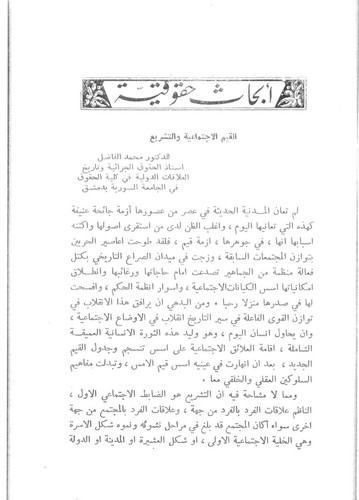 أبحاث حقوقية
القيم الاجتماعية والتشريع
للدكتور محمد الفاضل
استاذ الحقوق الجزائية وتاريخ
العلاقات الدولية في كلية الحقوق
في الجامعة السورية بدمشق
لم تعان المدنية الحديثة في عصر من عصورها أزمة جائحة عنيفة
كهذه التي تعانيها اليوم ، واغلب الظن لدى من استقرى اصولها واكتنه
اسبابها انها ، في جوهرها ، ازمة قيم ، فلقد طوحت اعاصير الحربين
بتوازن المجتمعات السابقة ، وزجت في ميدان الصراع التاريخي بكتل
فعالة منظمة من الجماهير تصدعت امام حاجاتها ورغائبها وانطلاق
امكانياتها اسس الكيانات الاجتماعية ، واسوار انظمة الحكم ، وافسحت
لها في صدرها منزلا رحبا . ومن البدهي ان يرافق هذا الانقلاب في
توازن القوى الفاعلة في سير التاريخ انقلاب في الاوضاع الاجتماعية ،
وان يحاول انسان اليوم ، وهو وليد هذه الثورة الانسانية العميقة
الشاملة ، اقامة العلائق الاجتماعية على اسس تنسجم وجدول القيم
الجديد ، بعد ان انهارت في عينيه اسس قيم الامس ، وتبدلت مفاهيم
السلوكين العقلي والخلقي معا .
ومما لا مشاحة فيه ان التشريع هو الضابط الاجتماعي الاول ،
الناظم علاقات الفرد بالفرد من جهة ، وعلاقات الفرد بالمجتمع من جهة
اخرى سواء أكان المجتمع قد بلغ في مراحل نشوئه ونموه شكل الاسرة
وهي الخلية الاجتماعية الاولى ، او شكل العشيرة او المدينة او الدولة